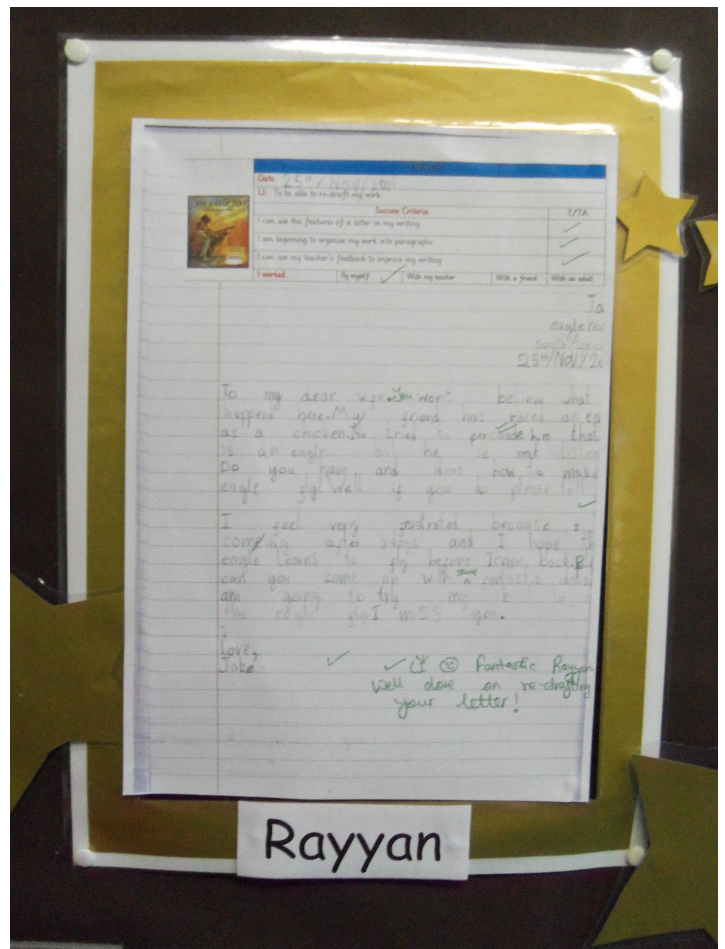 Date: 25th/Nov/2
LI: To be able to re-draft my work
Success Criteria T/TA
I can use the features of a letter in my writing
I am beginning to organise my work into paragraphs
I can use my teacher's feedback to improve my writing
I worked By myself With my teacher With a friend With an adult
25th/Nov/2
To my dear wife. You won't believe what
happend here. My friend has
as a chicken. tries to him that
is an eagle but he is not listen
Do you have and how to make
eagle fly? Well if you do please tell
I feel very because I
coming after and I hope th
eagle learns to fly before I come back.
can you come up with some fantastic
am going to try my
the eagle fly I miss you.
Love,
Jake
Fantastic Rayyan
Well done on re-drafting
your letter!
Rayyan